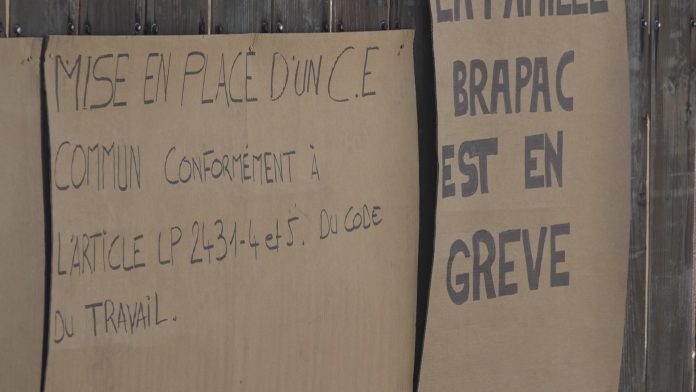 MISE EN PLACE D'UN C.E
COMMUN CONFORMÉMENT À
L'ARTICLE LP 2431-4 et 5. DU CODE
DU TRAVAIL.
LA FAMILLE
BRAPAC
EST EN
GREVE